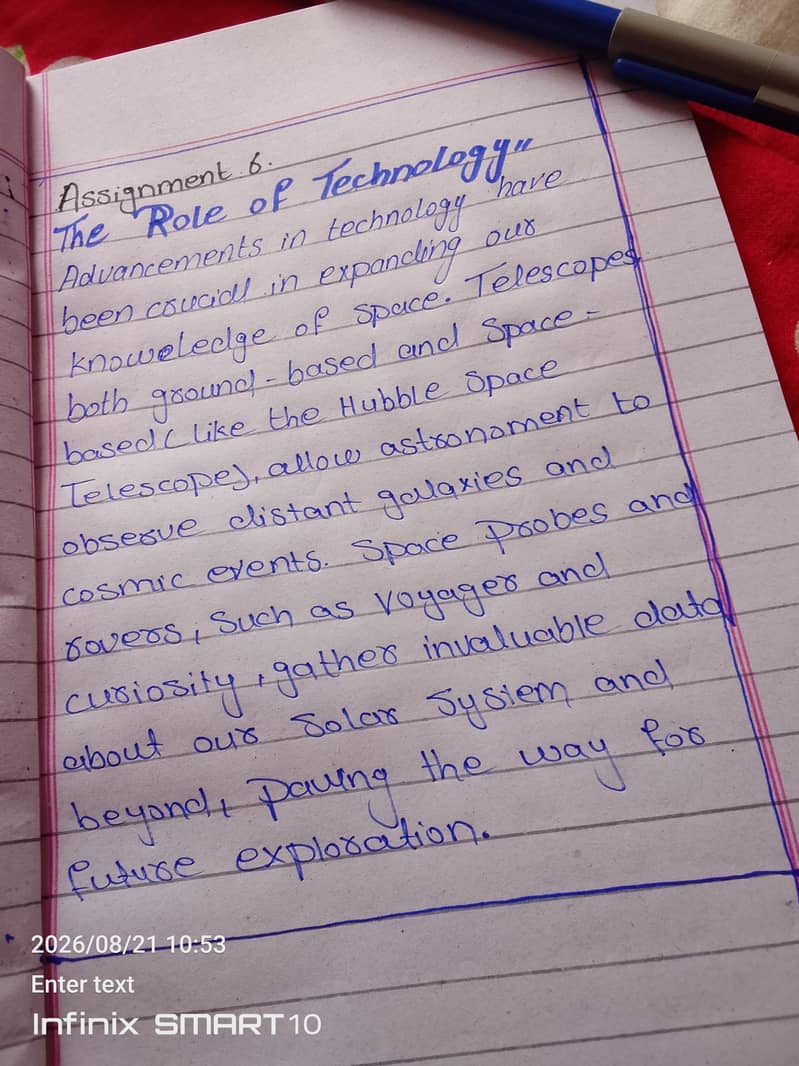 Assignment 6.
The "Role of Technology"
Advancements in technology have
been crucial in expanding our
knoweledge of space. Telescopes
both ground-based and space-
based (like the Hubble Space
Telescope), allow astronoment to
observe distant galaxies and
cosmic events. Space probes and
rovers, such as Voyager and
curiosity, gather invaluable data
about our Solar System and
beyond, paving the way for
future exploration.
2026/08/21 10:53
Enter text
Infinix SMART 10